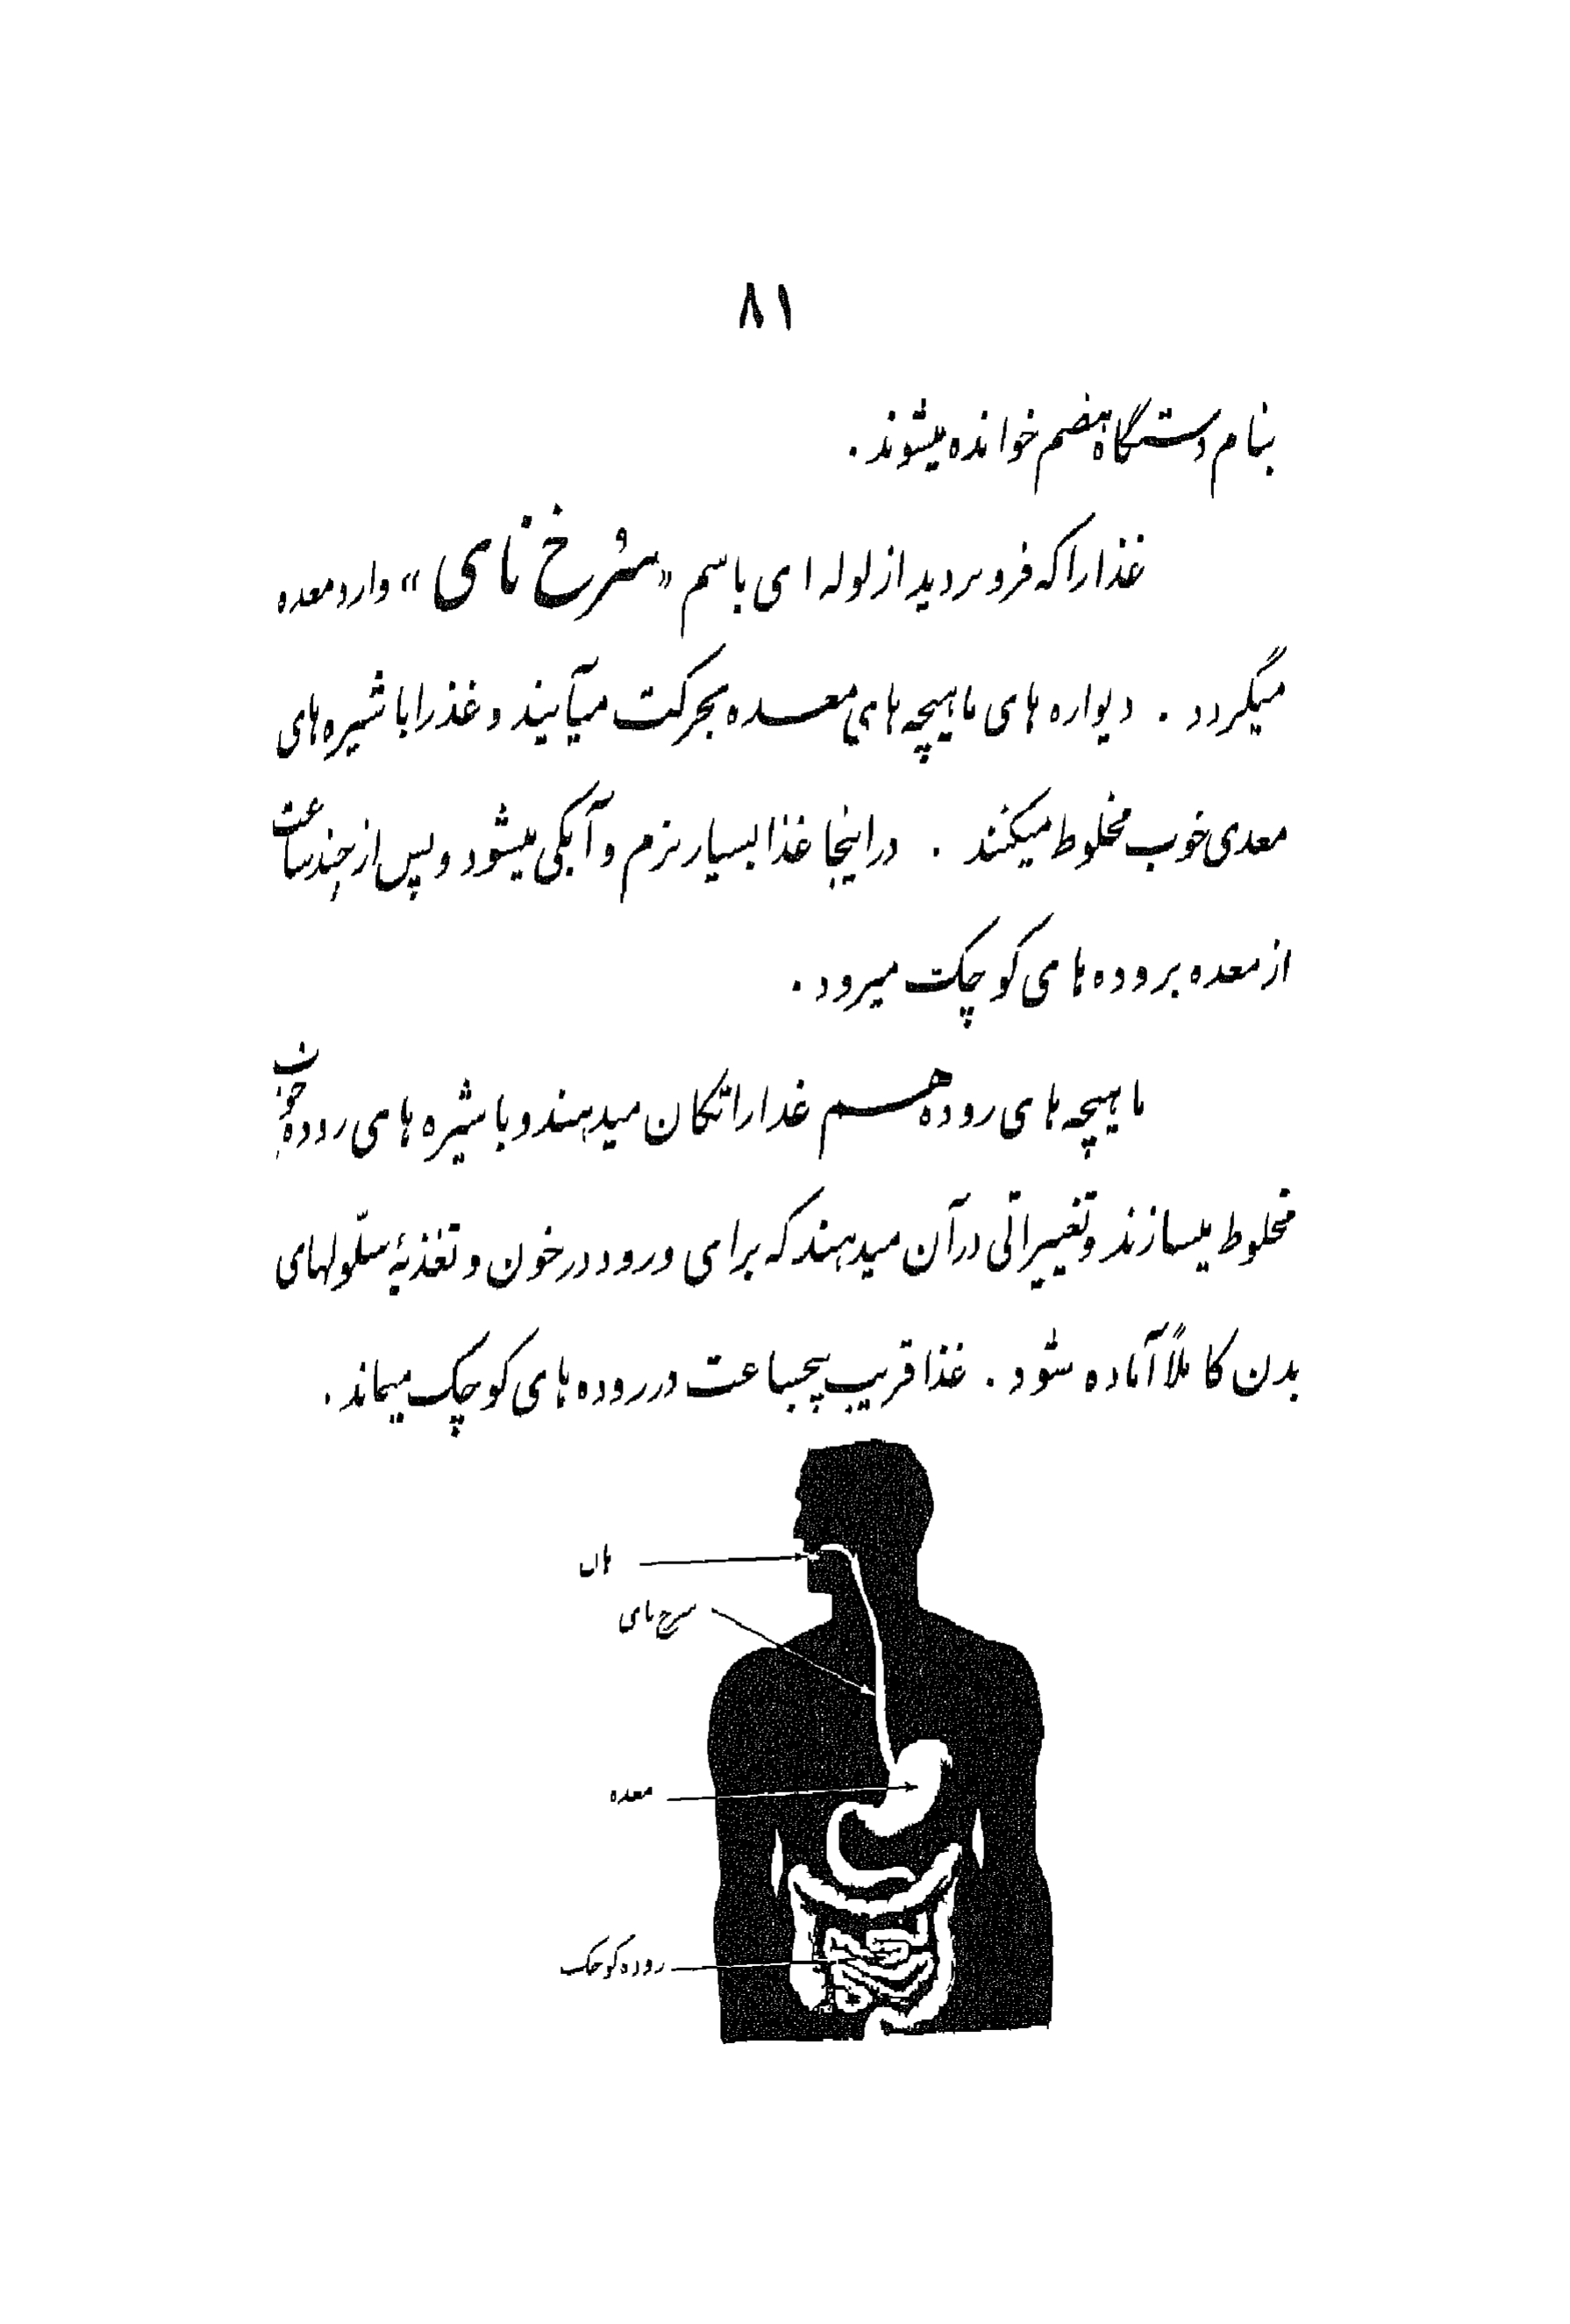 ۸۱
بنام دستگاه هضم خوانده میشوند .
غذا را که فرو بردید از لوله ای باسم «سُرخ نای» وارد معده
میگردد . دیواره های ماهیچه های معده بحرکت میآیند و غذا را با شیره های
معدی خوب مخلوط میکنند . در اینجا غذا بسیار نرم و آبکی میشود و پس از چند ساعت
از معده بروده های کوچک میرود .
ماهیچه های روده هم غذا را تکان میدهند و با شیره های روده خوب
مخلوط میسازند و تغییراتی در آن میدهند که برای ورود در خون و تغذیهٔ سلّولهای
بدن کاملاً آماده شود . غذا قریب پنجساعت در روده های کوچک میماند .
سرخ نای
معده
روده کوچک